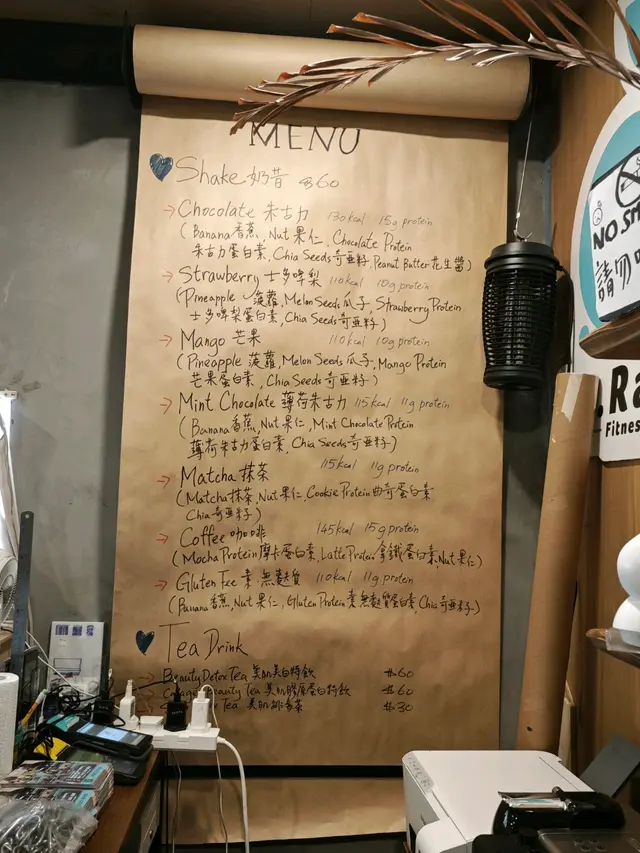 MENU
Shake 奶昔 $60
→ Chocolate 朱古力 130kcal 15g protein
(Banana香蕉, Nut果仁, Chocolate Protein
朱古力蛋白素, Chia Seeds奇亞籽, Peanut Butter花生醬)
→ Strawberry 士多啤梨 110kcal 10g protein
(Pineapple 菠蘿, Melon Seeds瓜子, Strawberry Protein
士多啤梨蛋白素, Chia Seeds奇亞籽)
→ Mango 芒果 110kcal 10g protein
(Pineapple 菠蘿, Melon Seeds瓜子, Mango Protein
芒果蛋白素, Chia Seeds奇亞籽)
→ Mint Chocolate 薄荷朱古力 115kcal 11g protein
(Banana香蕉, Nut果仁, Mint Chocolate Protein
薄荷朱古力蛋白素, Chia Seeds奇亞籽)
→ Matcha 抹茶 115kcal 11g protein
(Matcha抹茶, Nut果仁, Cookie Protein曲奇蛋白素
Chia奇亞籽)
→ Coffee 咖啡 145kcal 15g protein
(Mocha Protein摩卡蛋白素, Latte Protein拿鐵蛋白素, Nut果仁)
→ Gluten Fee 素無麩質 110kcal 11g protein
(Banana香蕉, Nut果仁, Gluten Protein素無麩質蛋白素, Chia奇亞籽)
Tea Drink
Beauty Detox Tea 美肌美白特飲 $60
Beauty Tea 美肌膠原蛋白特飲 $60
Tea $30
NO SM
請勿吸
.Ra
Fitness